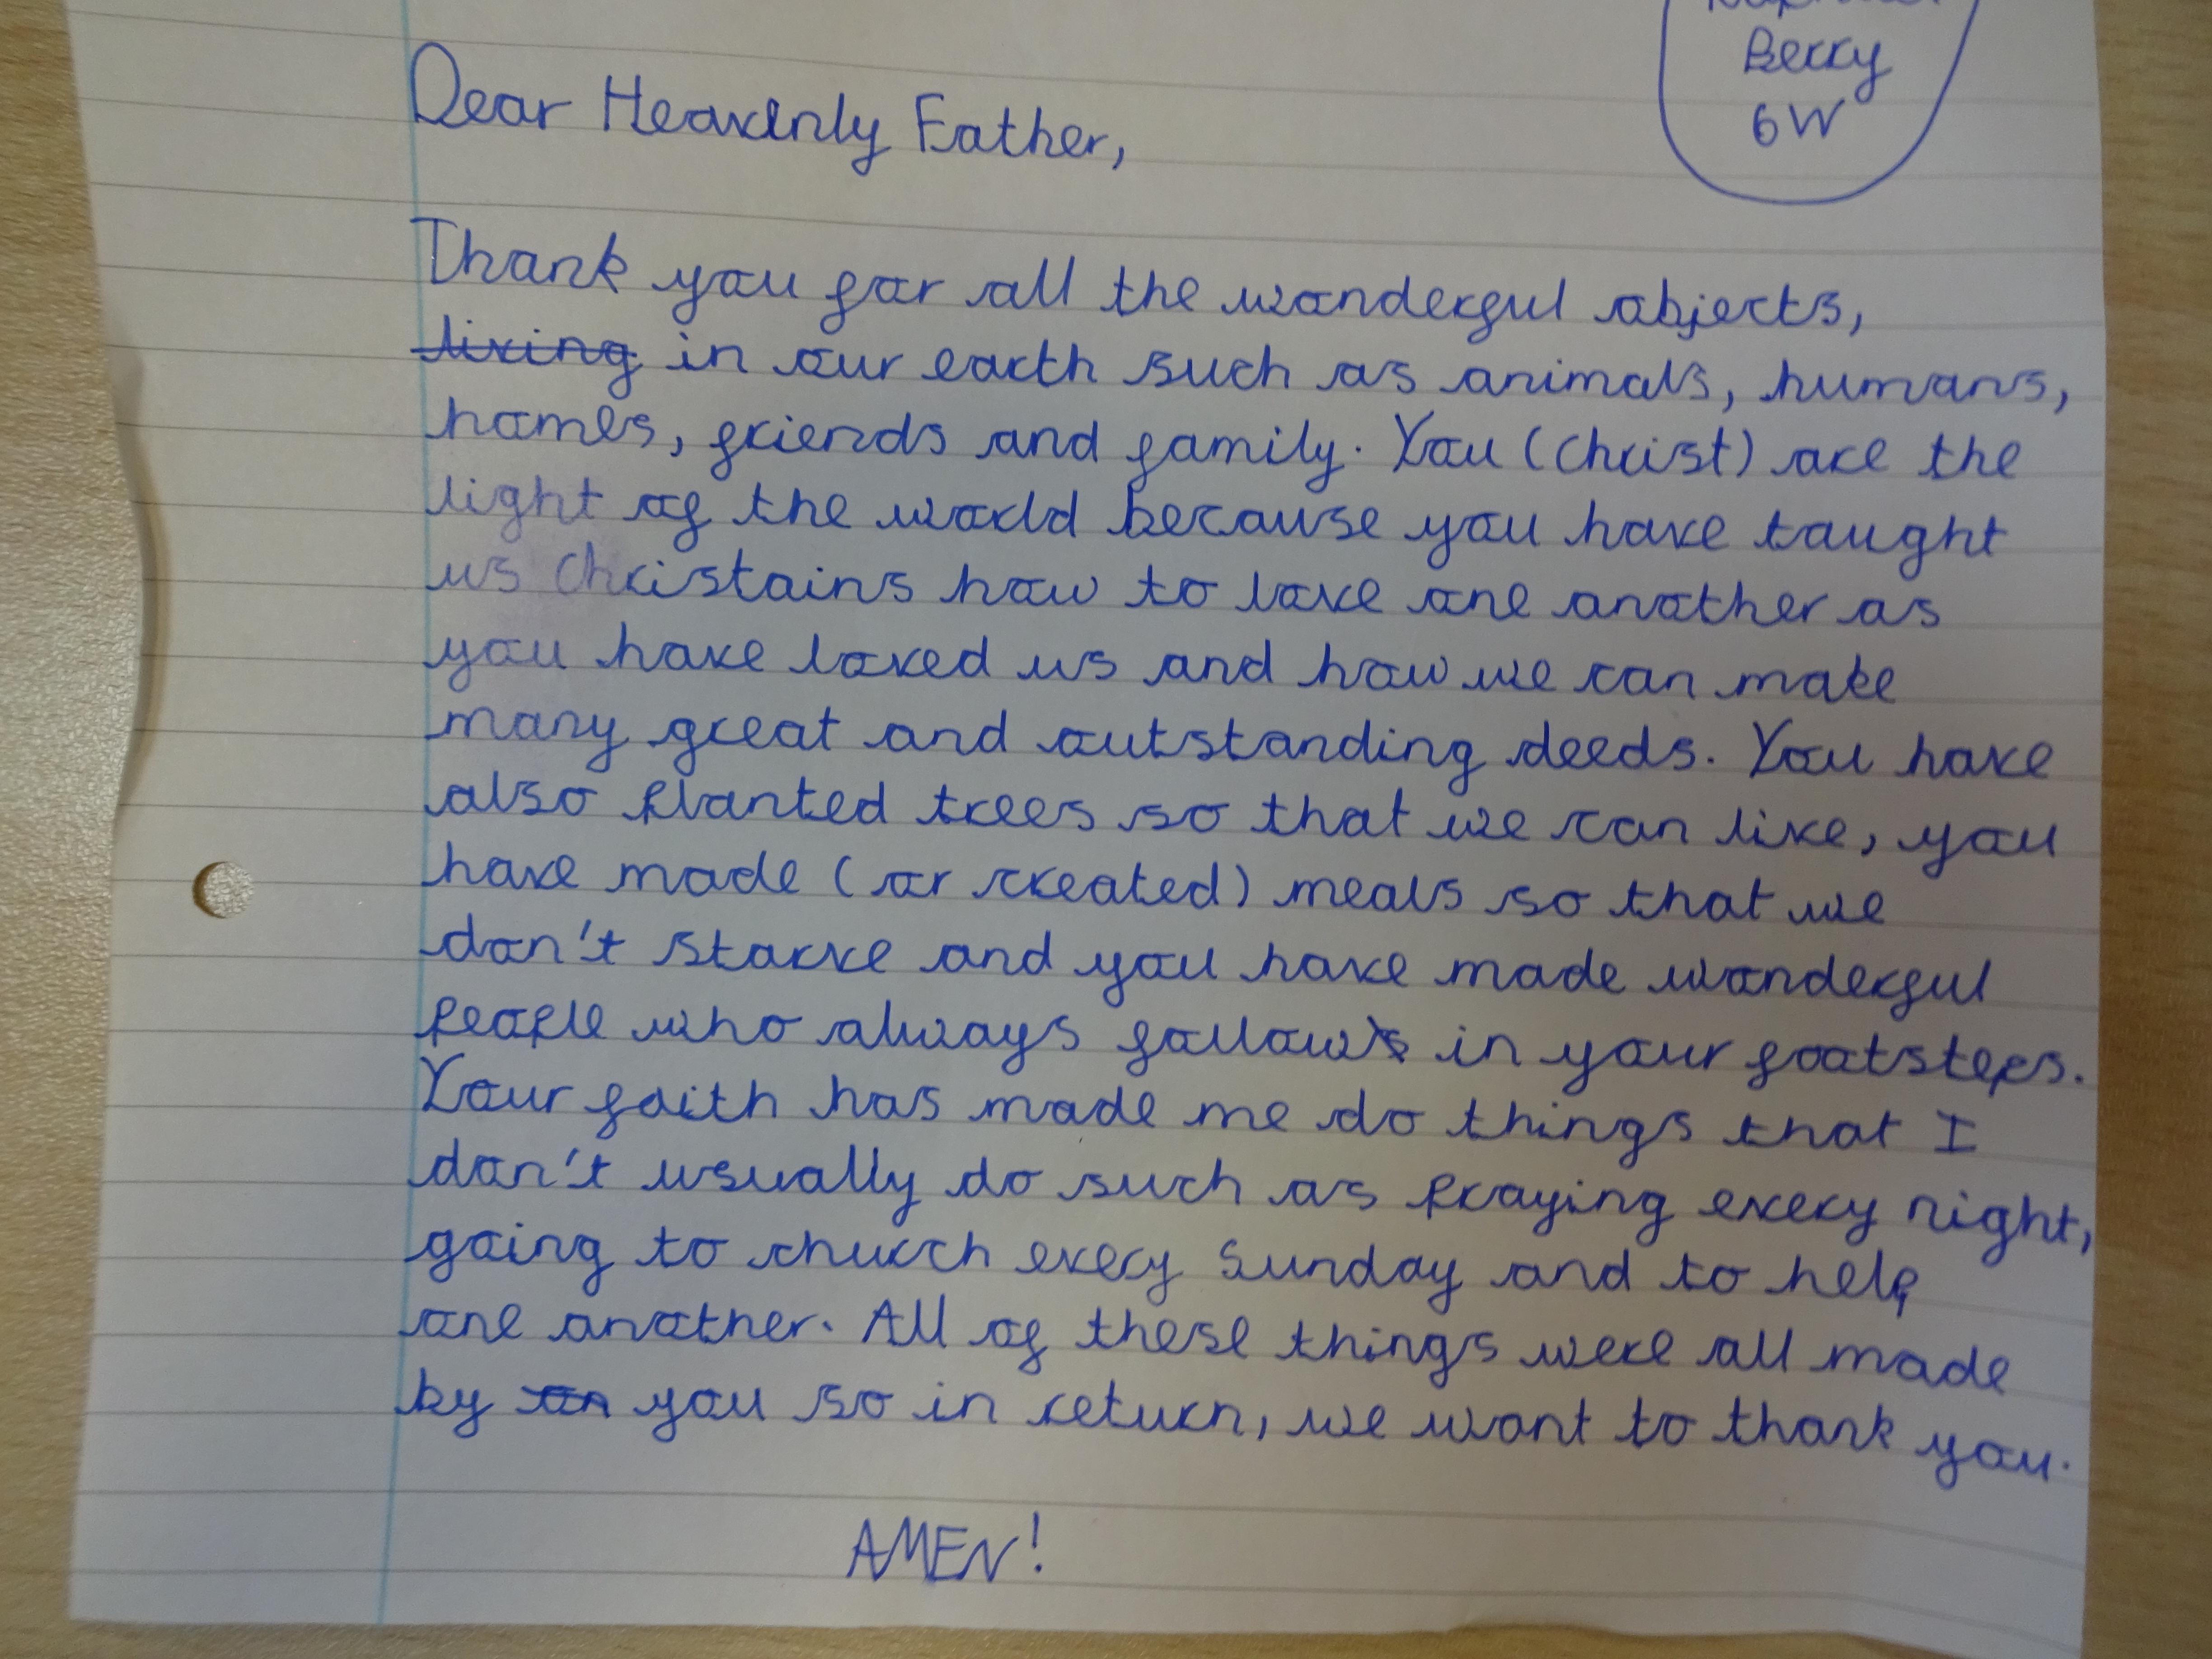 Berry
6W
Dear Heavenly Father,
Thank you for all the wonderful objects,
living in our earth such as animals, humans,
homes, friends and family. You (Christ) are the
light of the world because you have taught
us Christains how to love one another as
you have loved us and how we can make
many great and outstanding deeds. You have
also planted trees so that we can live, you
have made (or created) meals so that we
don't starve and you have made wonderful
people who always follow in your footsteps.
Your faith has made me do things that I
don't usually do such as praying every night,
going to church every Sunday and to help
one another. All of these things were all made
by you so in return, we want to thank you.
AMEN!